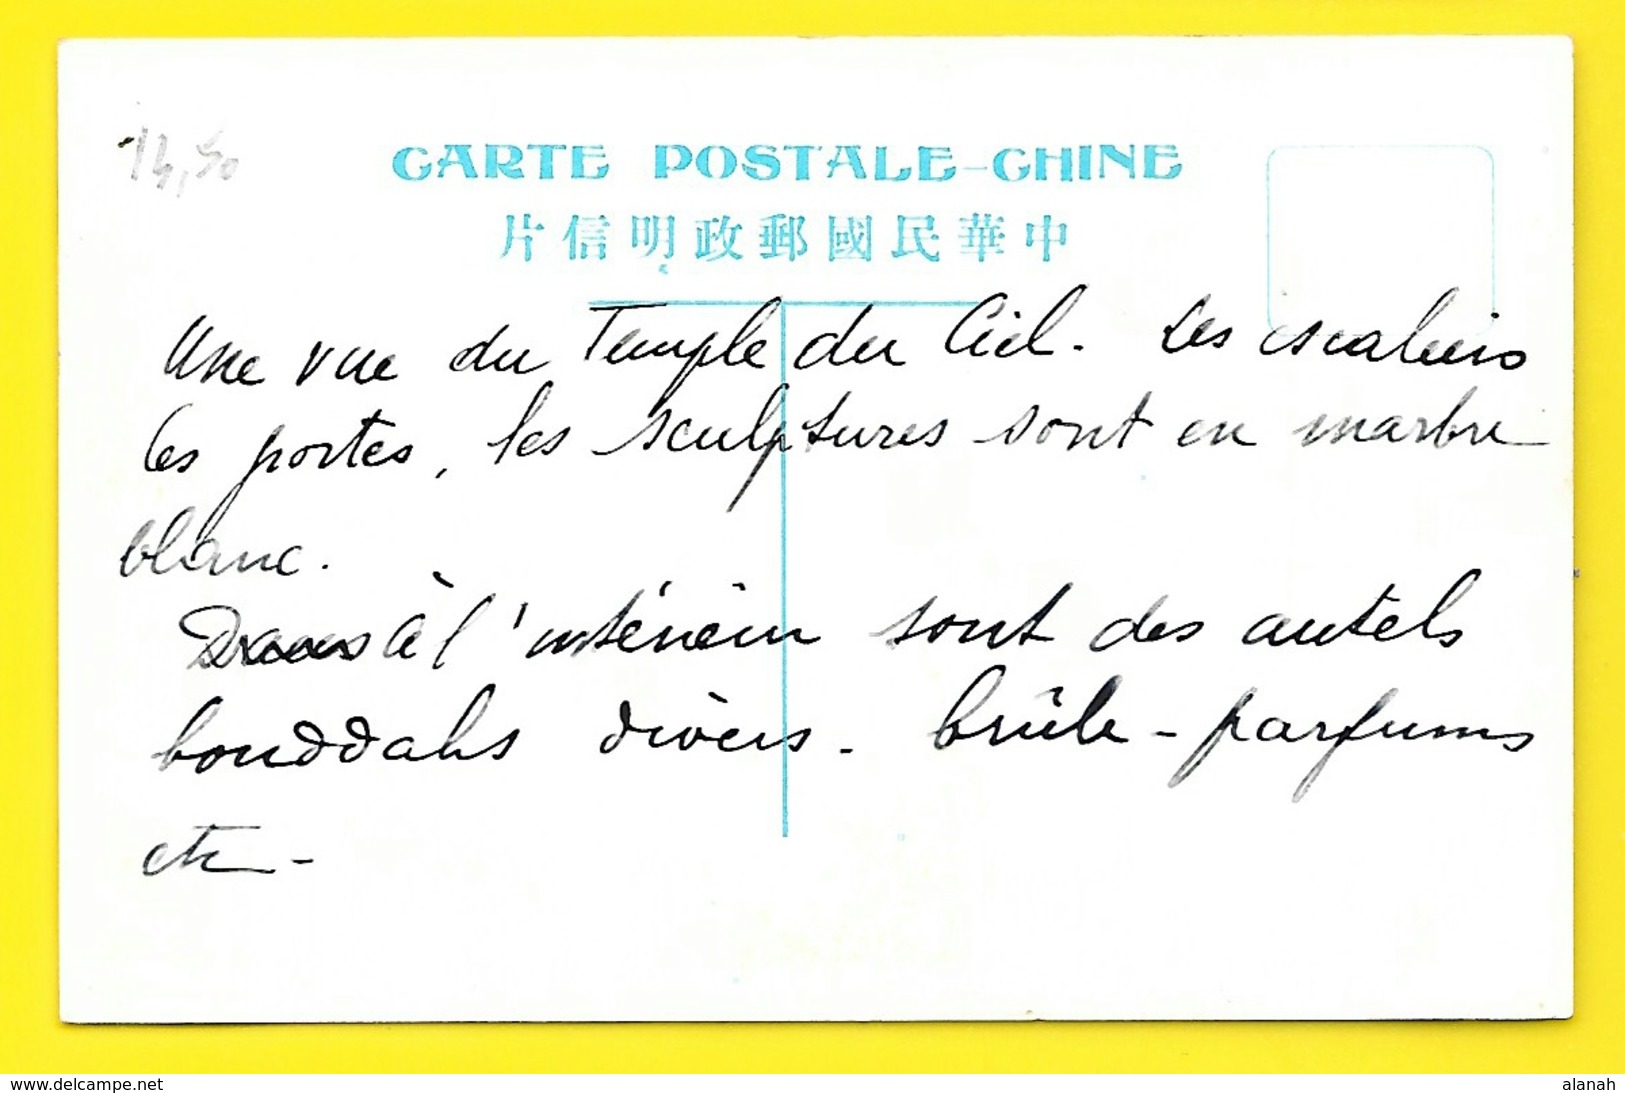 14,50
CARTE POSTALE-CHINE
片信明政郵國民華中
Une vue du Temple du Ciel. Les escaliers
les portes, les sculptures sont en marbre
blanc.
Dans à l'intérieur sont des autels
bouddahs divers. brûle-parfums
etc -
www.delcampe.net
alanah